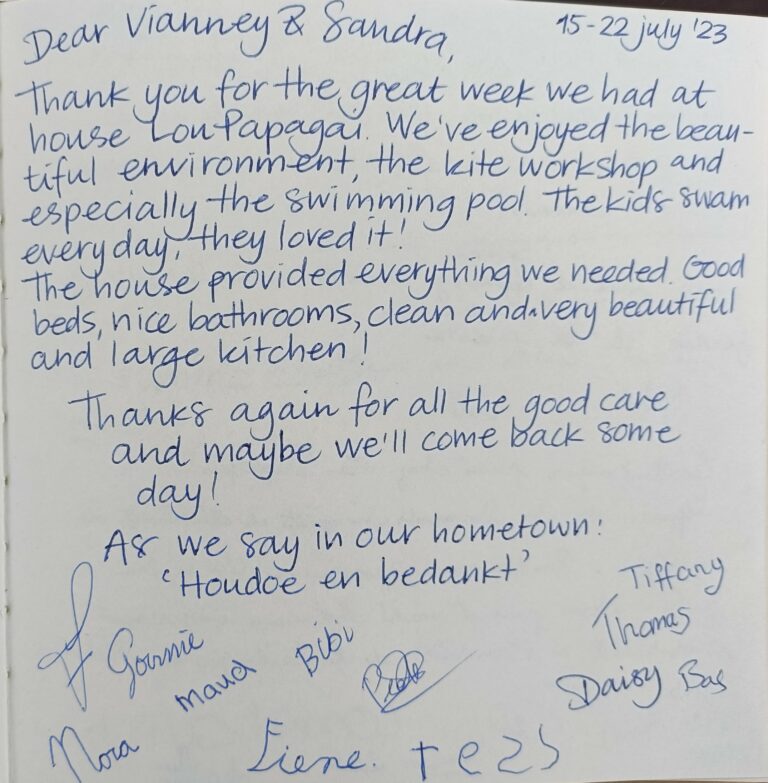 Dear Vianney & Sandra,
15-22 july '23
Thank you for the great week we had at
house Lou Papagai. We've enjoyed the beau-
tiful environment, the kite workshop and
especially the swimming pool. The kids swam
every day, they loved it!
The house provided everything we needed. Good
beds, nice bathrooms, clean and very beautiful
and large kitchen!
Thanks again for all the good care
and maybe we'll come back some
day!
As we say in our hometown:
'Houdoe en bedankt'
Tiffany
Thomas
Maud Bibi
Daisy Bas
Nora